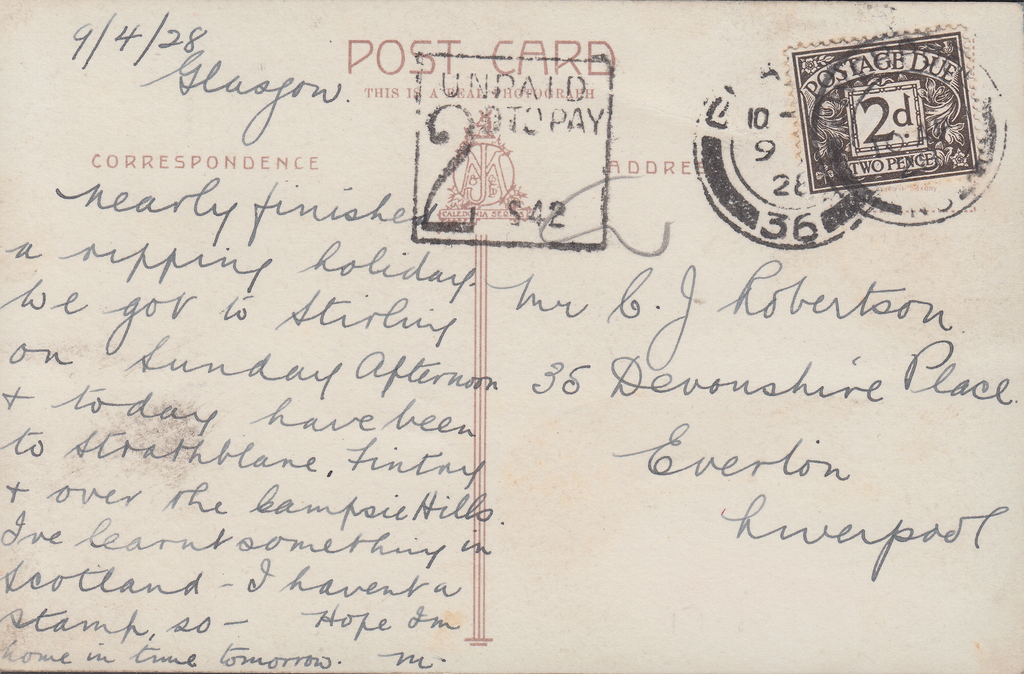 9/4/28
Glasgow.
POST CARD
THIS IS A REAL PHOTOGRAPH
UNPAID
2D TO PAY
S42
CALEDONIA SERIES
CORRESPONDENCE
ADDRE
POSTAGE DUE
2d
TWO PENCE
10 -
9
28
36
nearly finished
a ripping holiday.
We got to Stirling
on Sunday Afternoon
+ today have been
to Strathblane, Fintry
+ over the Campsie Hills.
I've learnt something in
Scotland - I havent a
stamp, so - Hope Im
home in time tomorrow. M.
Mr C. J Robertson
35 Devonshire Place.
Everton
Liverpool